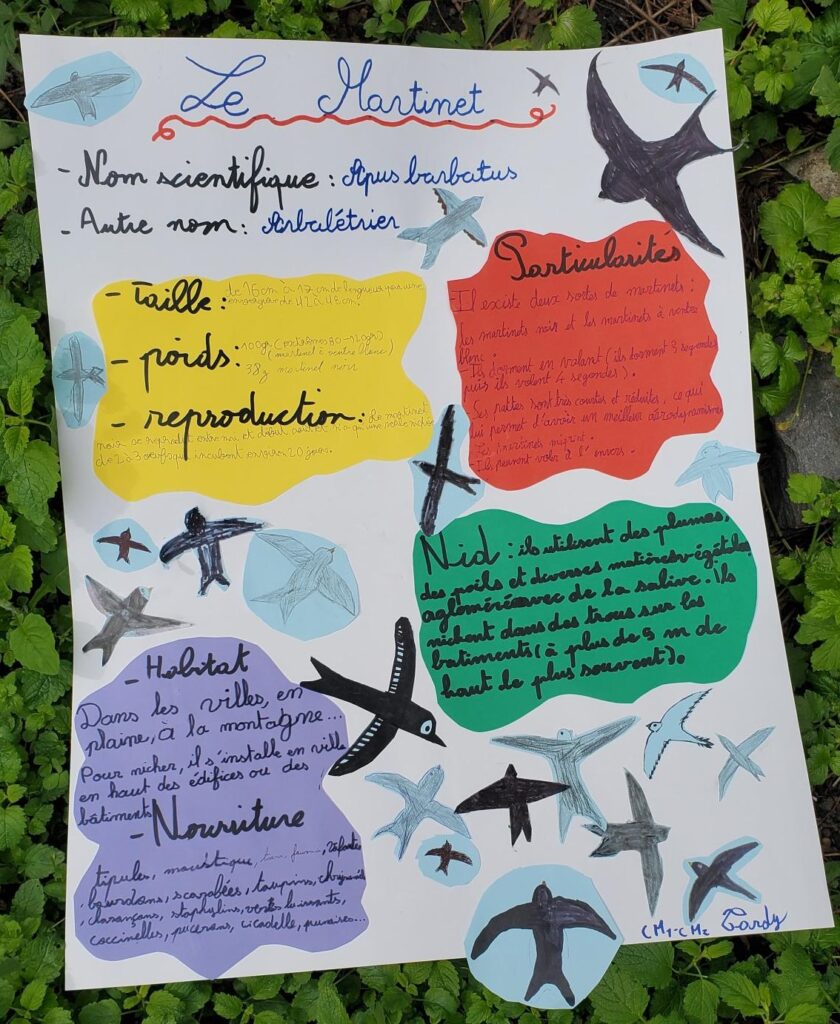 Le Martinet
- Nom scientifique : Apus barbatus
- Autre nom : Arbalétrier
- Taille : de 16 cm à 17 cm de longueur pour une
envergure de 42 à 48 cm.
- poids :
(martinet à ventre blanc)
38 g martinet noir
- reproduction : Le martinet
noir se reproduit entre mai et début
de 2 à 3 œufs qui incubent environ 20 jours.
Particularités
- Il existe deux sortes de martinets :
les martinets noir et les martinets à ventre
blanc.
- Ils dorment en volant (ils dorment 3 segondes
puis ils volent 4 segondes).
Ses pattes sont très courtes et réduites, ce qui
lui permet d'avoir un meilleur aérodynamisme
- Les martinets migrent.
- Ils peuvent voler à l'envers.
Nid : ils utilisent des plumes,
des poils et diverses matières végétales
aglomérées avec de la salive. Ils
nichent dans des trous sur les
batiments (à plus de 5 m de
haut le plus souvent).
- Habitat
Dans les villes, en
plaine, à la montagne...
Pour nicher, il s'installe en ville
en haut des édifices ou des
bâtiments
- Nourriture
tipules, moustique,
bourdons, scarabées, taupins,
charançons, staphylins, vers luissants,
coccinelles, pucerons, cicadelle, punaises...
CM1-CM2 Tardy